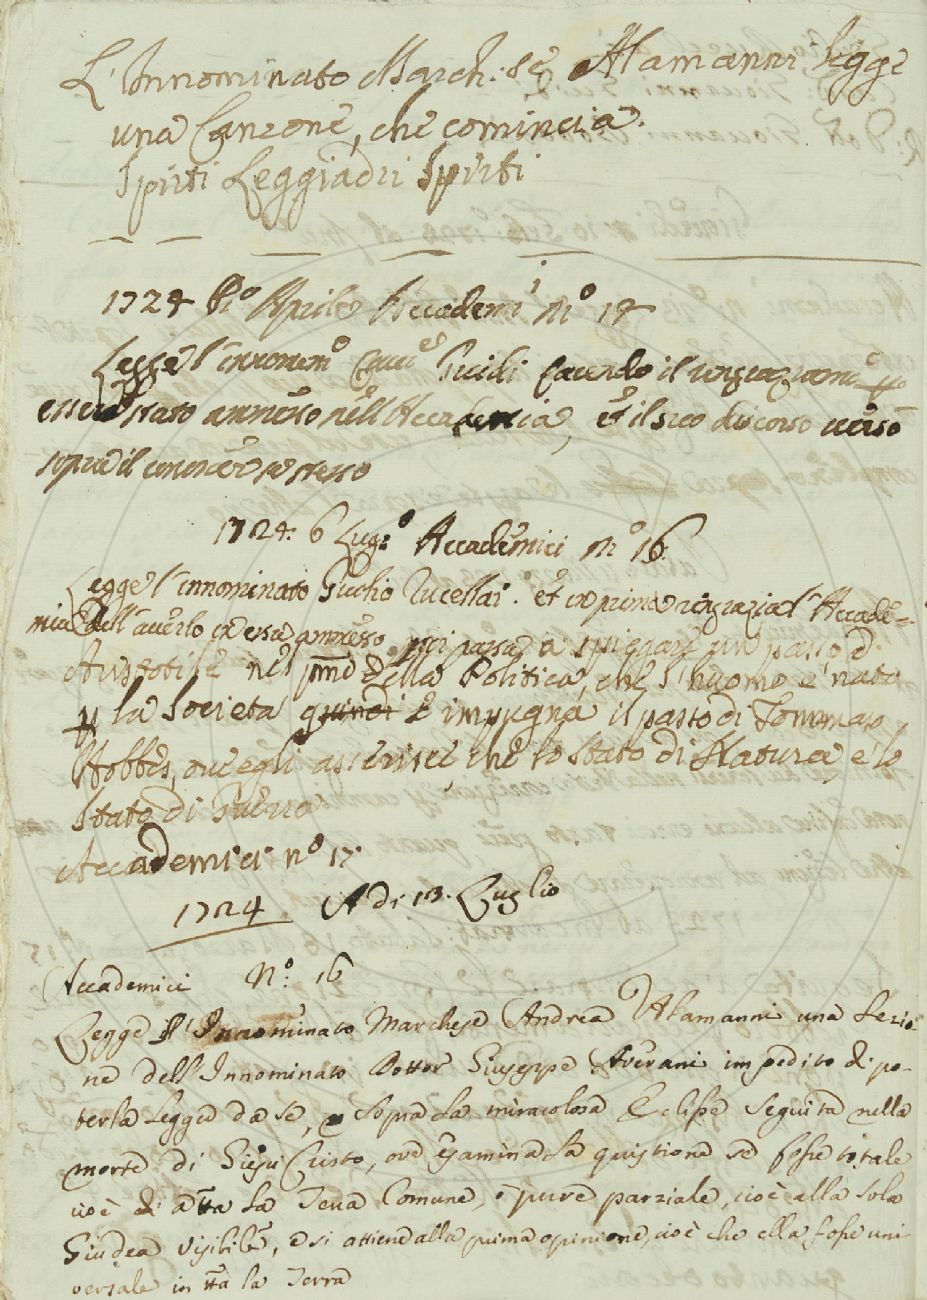 L'Innominato March:se Alamanni legge
una Canzone, che comincia.
Spirti Leggiadri Spirti
1724 P.o Aprile Accademi N.o 14
Legge l'innomin.o Guidi facendo il ringraziam.o p
essere stato ammesso nell'Accademia, et il suo discorso verso
sopra il conoscer se stesso
1724. 6 Lugo Accademici N.o 16
Legge l'innominato Giulio Rucellai. et in prima ringrazia l'Accade=
mia dell'averlo in essa ammesso poi passa a spiegare un passo d.
Aristotile nel pmo della Politica, che l'huomo è nato
p la Società quindi E impugna il passo di Tommaso
Hobbes, ove egli asserisce che lo stato di Natura, è lo
stato di Guerra
Accademici n.o 17.
1724 A di 13. Luglio
Accademici N.o 16
Legge l'Innominato Marchese Andrea Alamanni una Lezio
ne dell'Innominato Dottor Giuseppe Averani impedito di po-
terla leggere da se, sopra la miracolosa Eclisse seguita nella
morte di Giesù Cristo, ove esamina la quistione se fosse totale
cioè di atta la Terra Comune, o pure parziale, cioè alla sola
Giudea visibile, e si attiene alla prima opinione, cioè che ella fosse uni
versale in tta la Terra